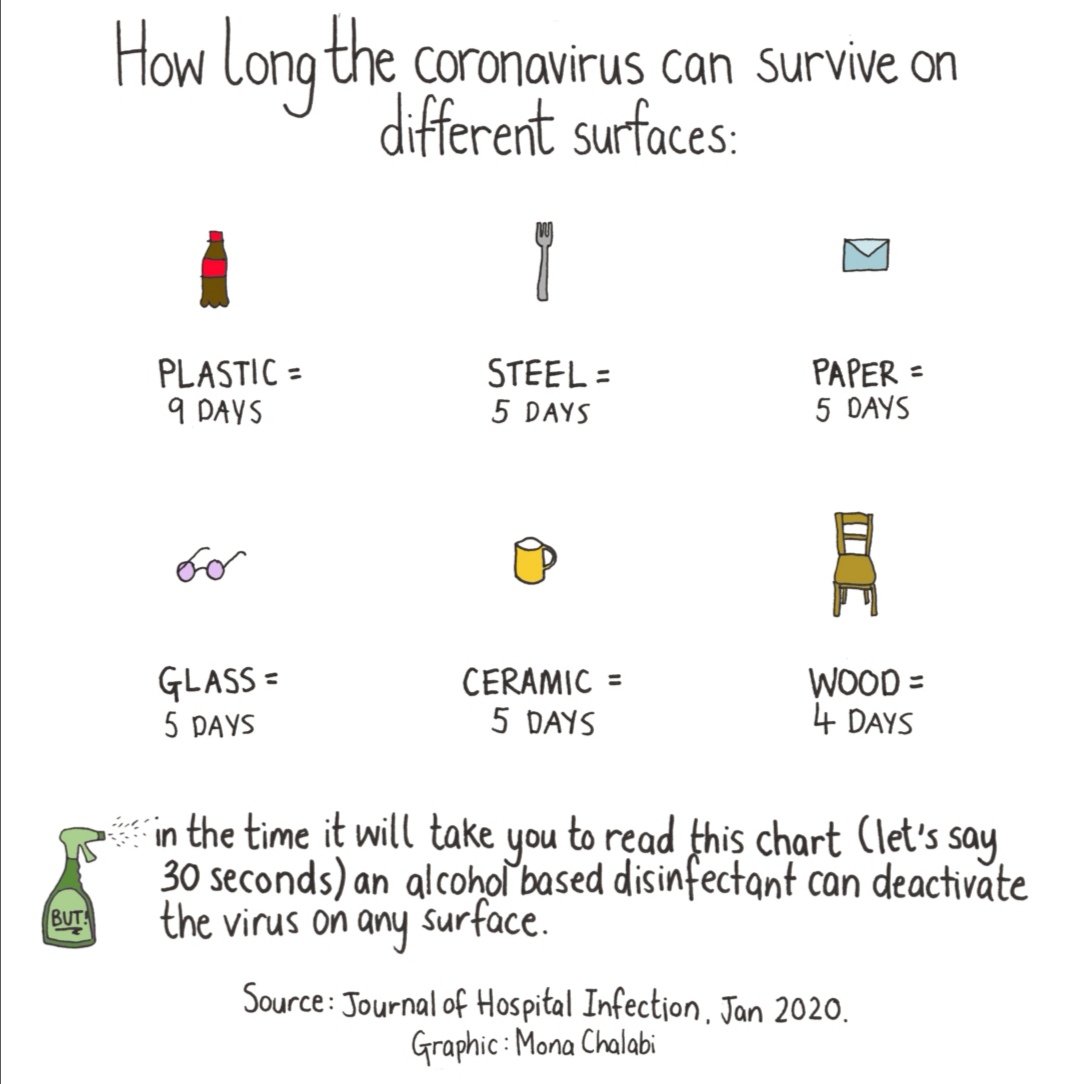 How long the coronavirus can survive on
different surfaces:
PLASTIC =
9 DAYS
STEEL =
5 DAYS
PAPER =
5 DAYS
GLASS =
5 DAYS
CERAMIC =
5 DAYS
WOOD =
4 DAYS
BUT!
in the time it will take you to read this chart (let's say
30 seconds) an alcohol based disinfectant can deactivate
the virus on any surface.
Source: Journal of Hospital Infection, Jan 2020.
Graphic: Mona Chalabi